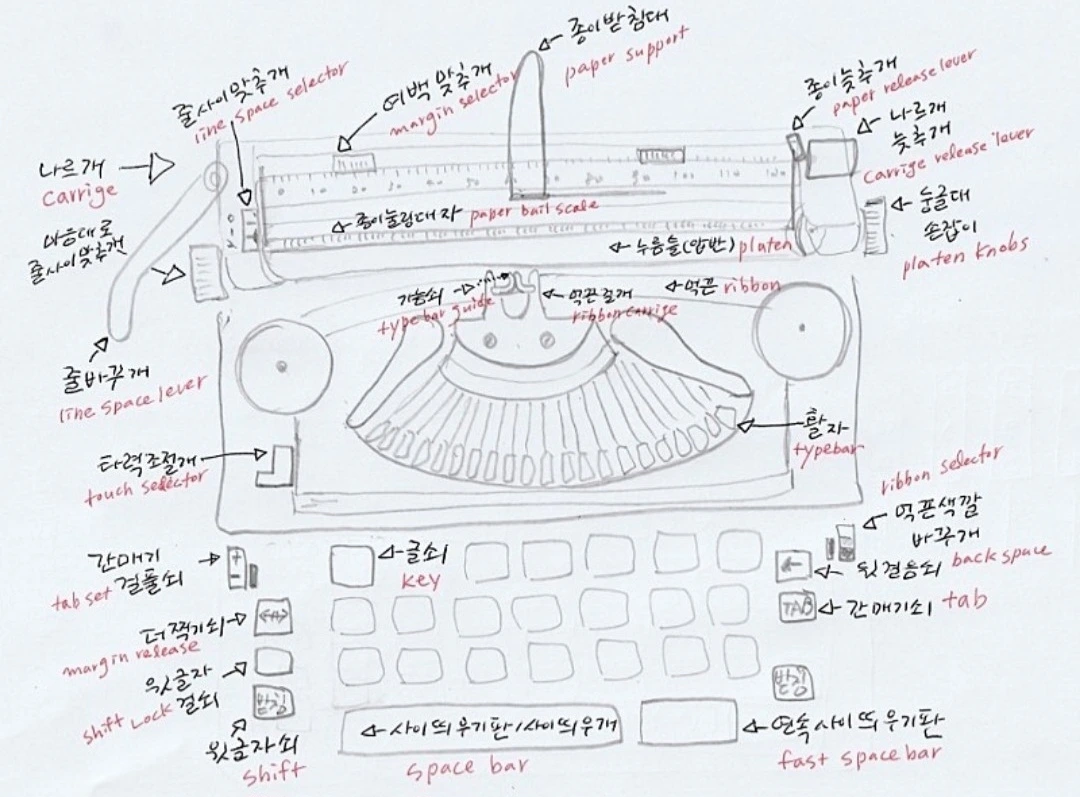 종이받침대
paper support
줄사이맞추개
line space selector
여백 맞추개
margin selector
종이늦추개
paper release lever
나르개
늦추개
carrige release lever
나르개
carrige
0 10 20 30 40 50 80 90 100 110 120
마음대로
줄사이맞추개
종이눌림대 자 paper bail scale
누름틀(압반) platen
둥글대
손잡이
platen knobs
가늠쇠
type bar guide
먹끈줄개
ribbon carrige
먹끈 ribbon
줄바꾸개
line space lever
활자
typebar
타력조절개
touch selector
ribbon selector
먹끈색깔
바꾸개
간매기
걸톨쇠
tab set
+
-
글쇠
key
←
뒷걸음쇠 back space
터쭉기쇠
margin release
<↔>
TAB
간매기쇠 tab
윗글자
걸쇠
shift lock
받침
윗글자쇠
shift
받침
사이띄우기판/사이띄우개
space bar
연속사이띄우기판
fast space bar